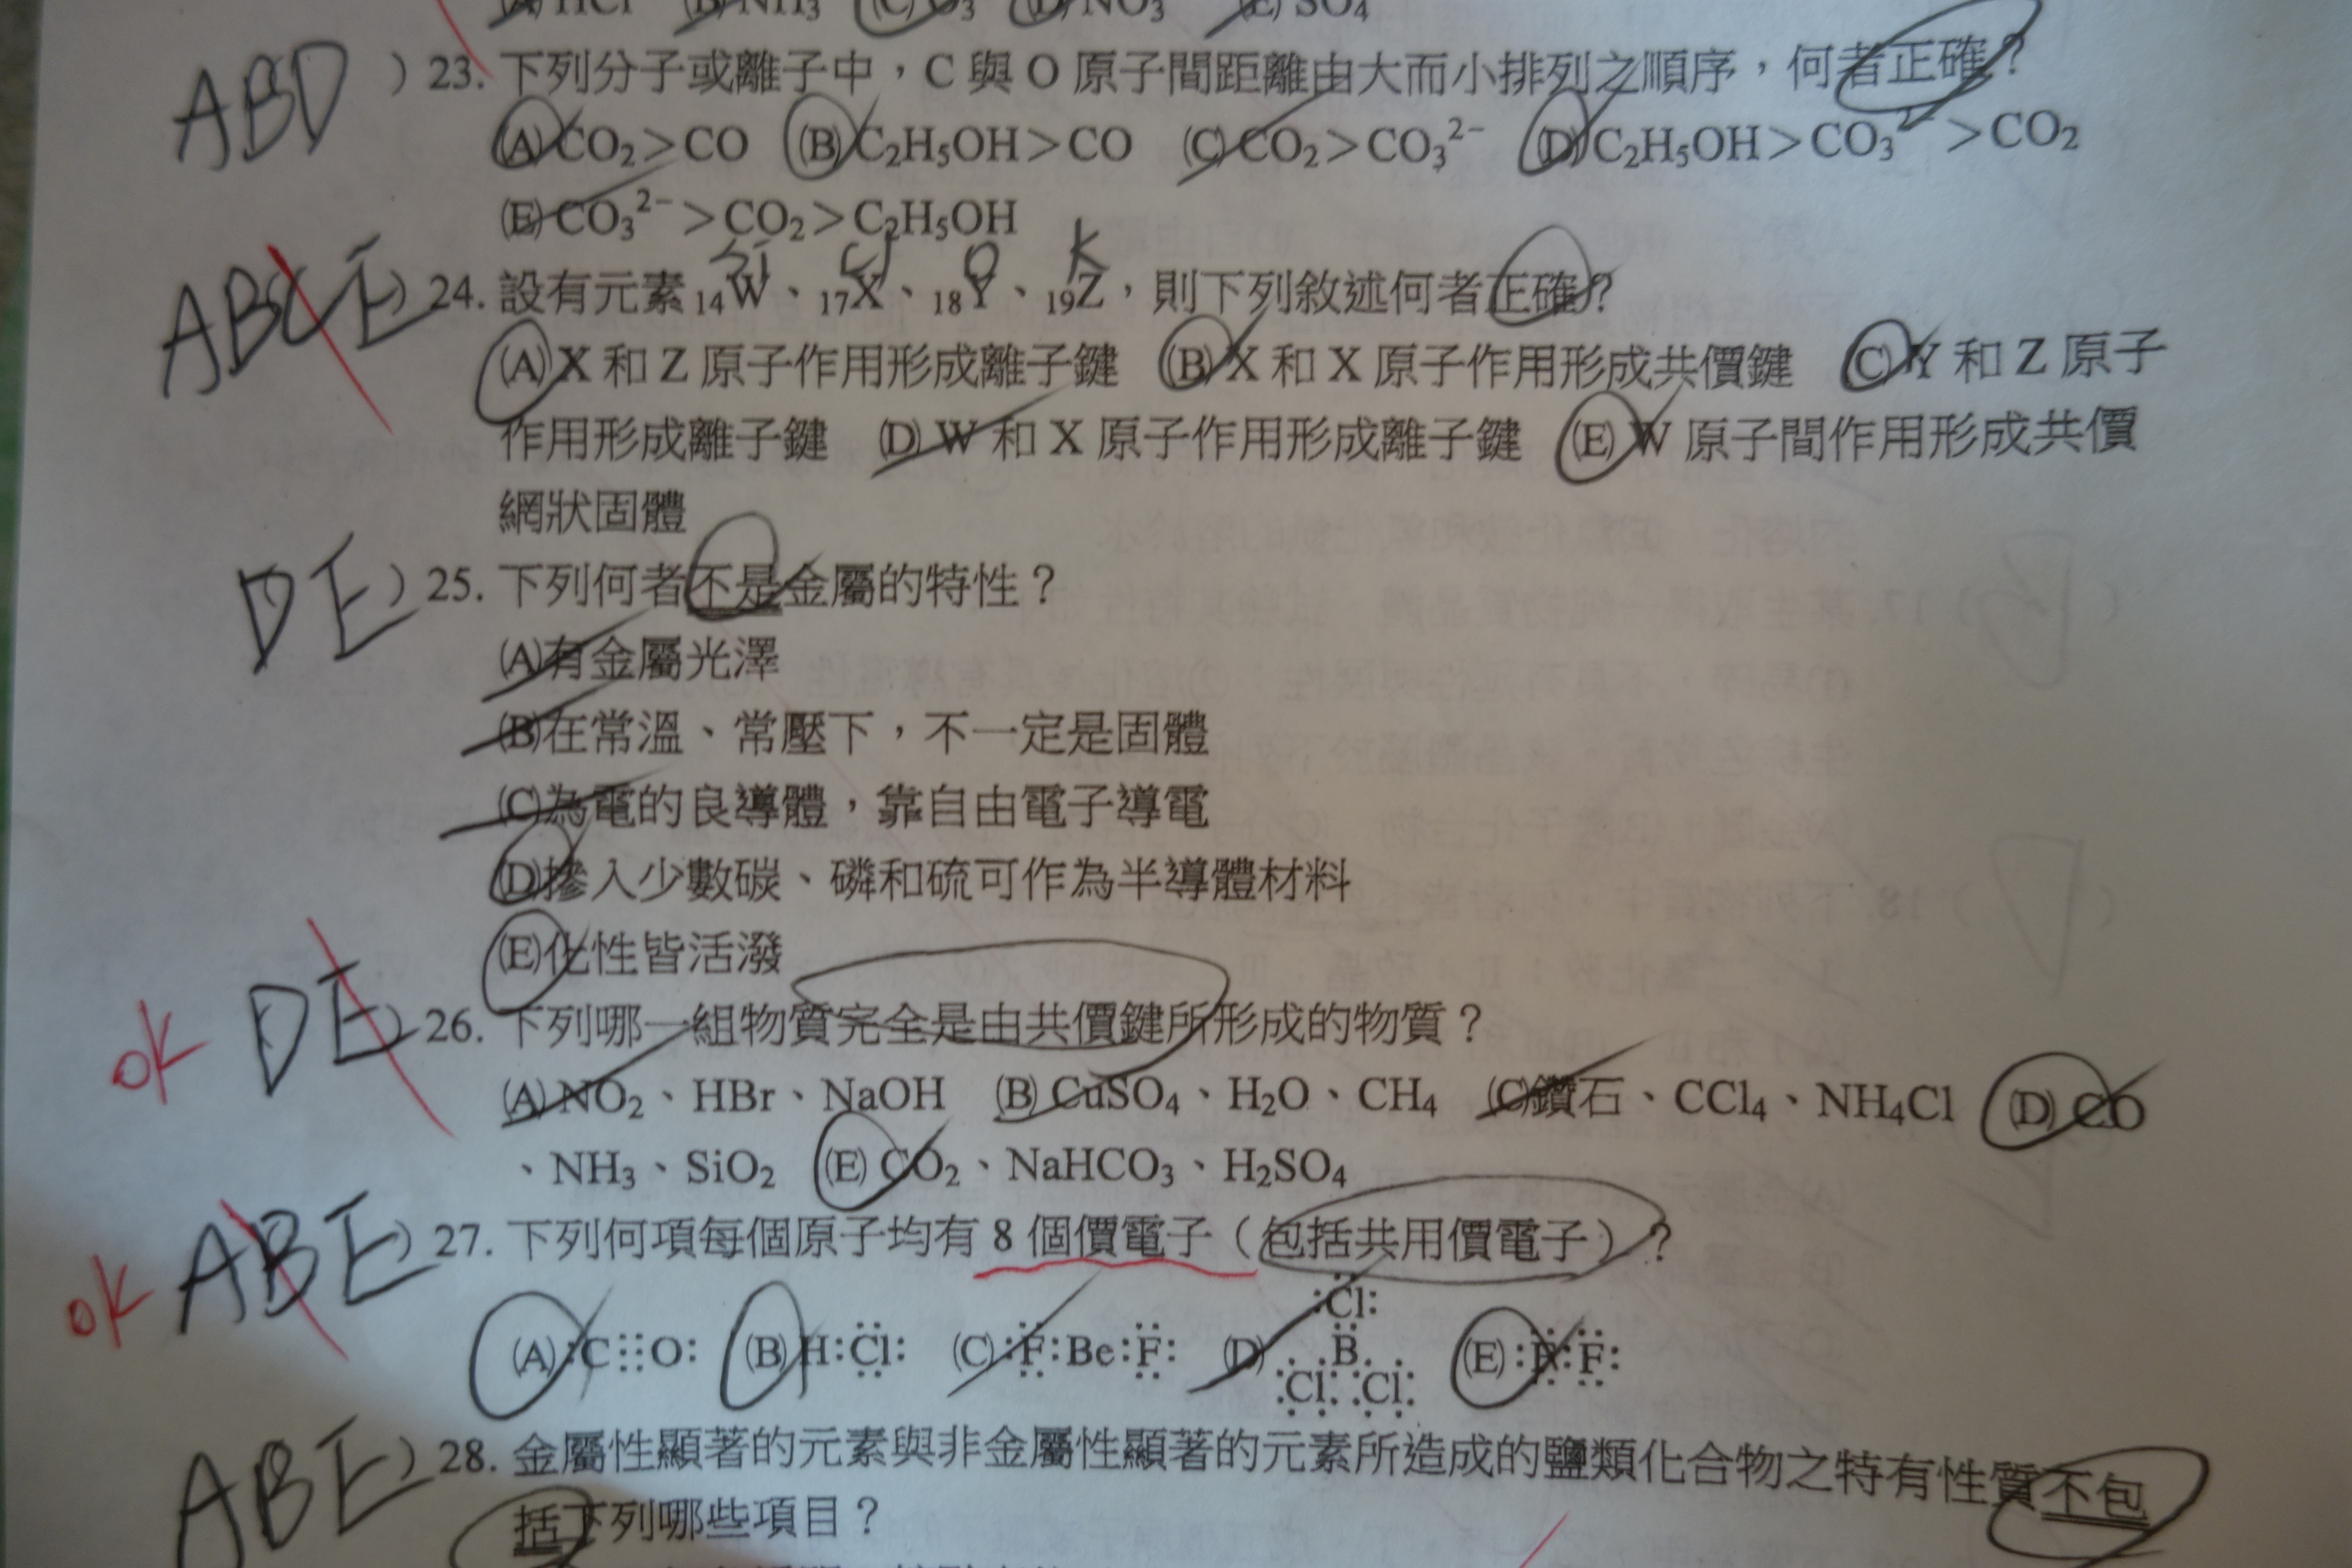 (A) HCl (B) NH₃ (C) O₃ (D) NO₃ (E) SO₄
ABD ) 23. 下列分子或離子中，C 與 O 原子間距離由大而小排列之順序，何者正確？
(A) CO₂＞CO (B) C₂H₅OH＞CO (C) CO₂＞CO₃²⁻ (D) C₂H₅OH＞CO₃²⁻＞CO₂
(E) CO₃²⁻＞CO₂＞C₂H₅OH
Si Cl K
ABCE ) 24. 設有元素 ₁₄W、₁₇X、₁₈Y、₁₉Z，則下列敘述何者正確？
(A) X 和 Z 原子作用形成離子鍵 (B) X 和 X 原子作用形成共價鍵 (C) Y 和 Z 原子
作用形成離子鍵 (D) W 和 X 原子作用形成離子鍵 (E) W 原子間作用形成共價
網狀固體
DE ) 25. 下列何者不是金屬的特性？
(A)有金屬光澤
(B)在常溫、常壓下，不一定是固體
(C)為電的良導體，靠自由電子導電
(D)摻入少數碳、磷和硫可作為半導體材料
(E)化性皆活潑
OK DE ) 26. 下列哪一組物質完全是由共價鍵所形成的物質？
(A) NO₂、HBr、NaOH (B) CuSO₄、H₂O、CH₄ (C)鑽石、CCl₄、NH₄Cl (D) CO
、NH₃、SiO₂ (E) CO₂、NaHCO₃、H₂SO₄
OK ABE ) 27. 下列何項每個原子均有 8 個價電子（包括共用價電子）？
(A) :C⫶⫶O: (B) H:Cl: (C) :F:Be:F: (D) :Cl: B :Cl: :Cl: (E) :F:F:
ABE ) 28. 金屬性顯著的元素與非金屬性顯著的元素所造成的鹽類化合物之特有性質不包
括下列哪些項目？